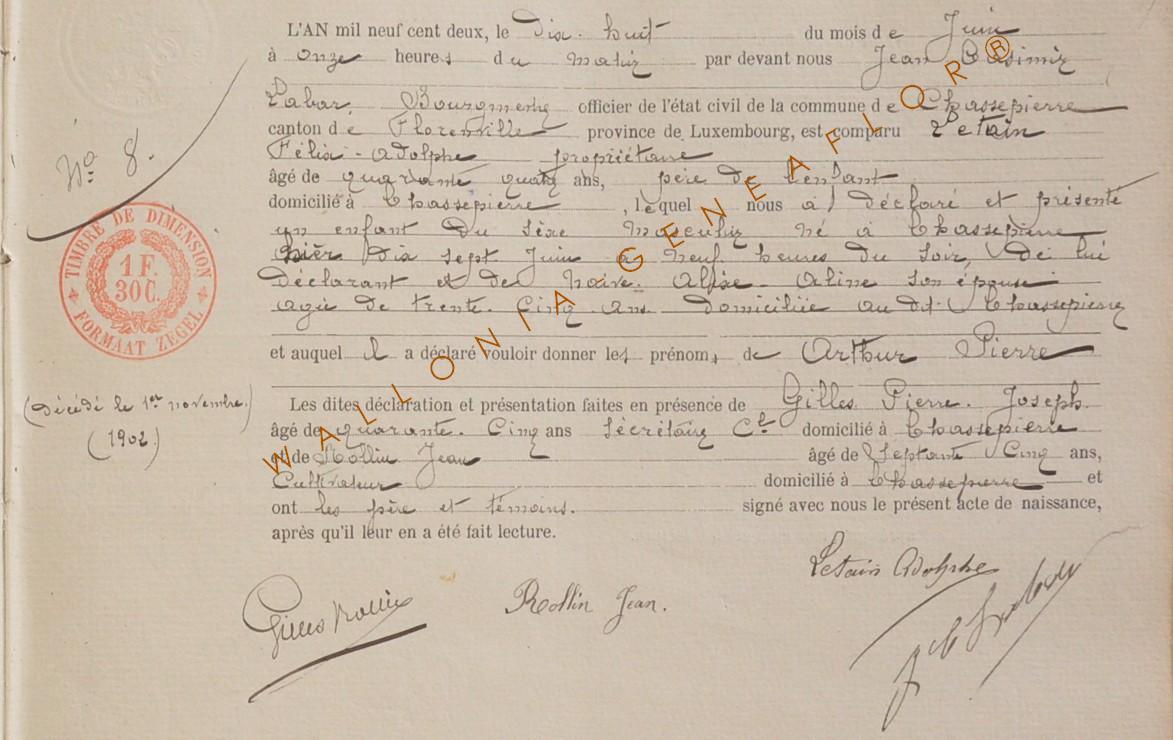 L'AN mil neuf cent deux, le dix-huit du mois de Juin
à onze heures du matin par devant nous Jean Casimir
Labar, Bourgmestre officier de l'état civil de la commune de Chassepierre
canton de Florenville province de Luxembourg, est comparu Letain
Félix-Adolphe propriétaire
âgé de quarante quatre ans, père de l'enfant
domicilié à Chassepierre, lequel nous a déclaré et présenté
un enfant du sexe masculin né à Chassepierre
hier dix sept Juin à neuf heures du soir, de lui
déclarant et de Alixe-Aline son épouse
agée de trente-cinq ans domiciliée au dt. Chassepierre
et auquel il a déclaré vouloir donner les prénoms de Arthur Pierre
Les dites déclaration et présentation faites en présence de Gilles Pierre-Joseph
âgé de quarante-cinq ans secrétaire Cl domicilié à Chassepierre
et de Rollin Jean âgé de septante cinq ans,
cultivateur domicilié à Chassepierre et
ont les père et témoins. signé avec nous le présent acte de naissance,
après qu'il leur en a été fait lecture.
No 8.
TIMBRE DE DIMENSION
1 F.
30 C.
FORMAAT ZEGEL
(Décédé le 1er novembre.
(1902)
Letain Adolphe
Gilles Rollin
Rollin Jean.
WALLONIA GENEAFLOR®